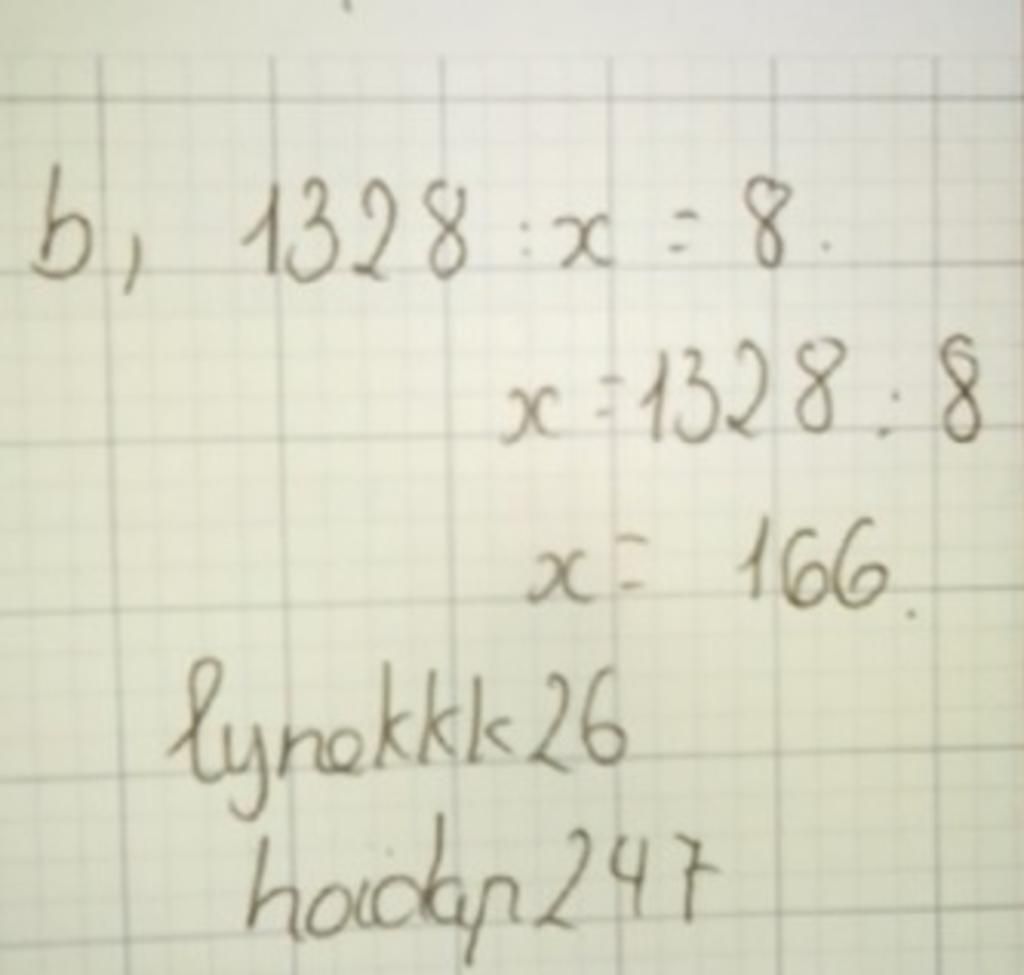 b, 1328 : x = 8.
x = 1328 : 8
x = 166.
lynekkk26
hoidap247